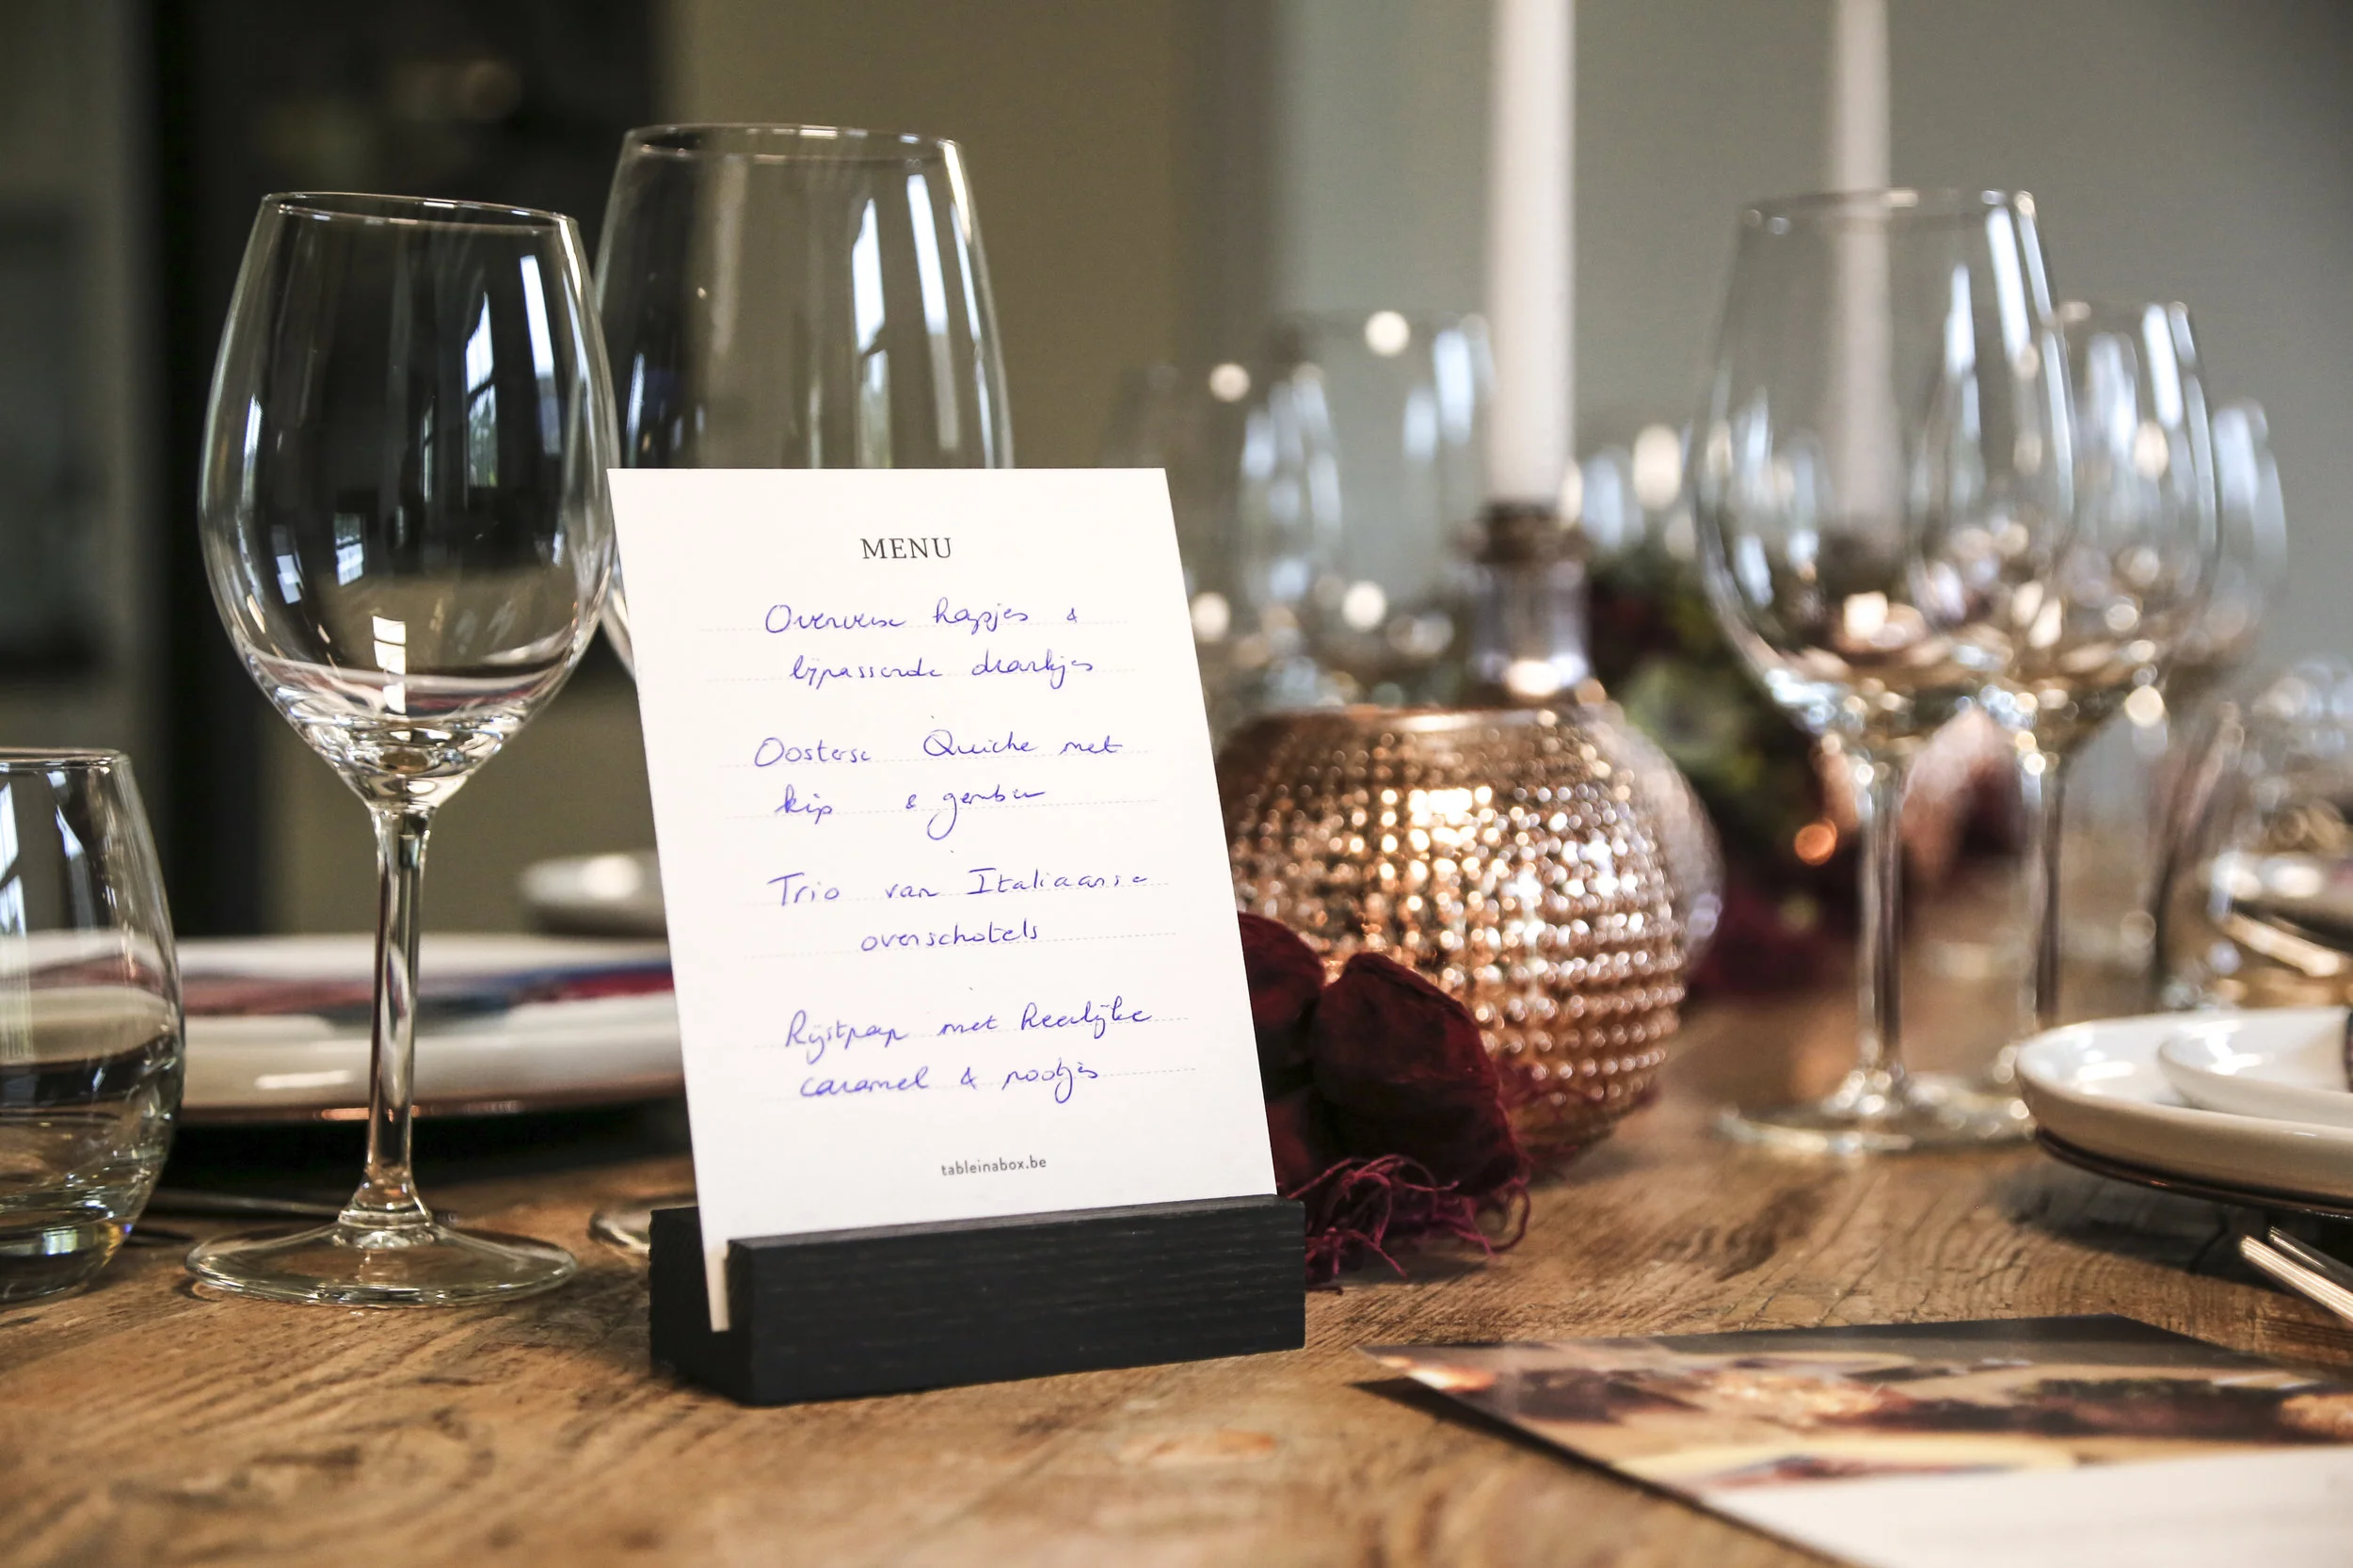 MENU
Oververse hapjes &
bijpassende drankjes
Oosterse Quiche met
kip & gember
Trio van Italiaanse
ovenschotels
Rijstpap met heerlijke
caramel & nootjes
tableinabox.be